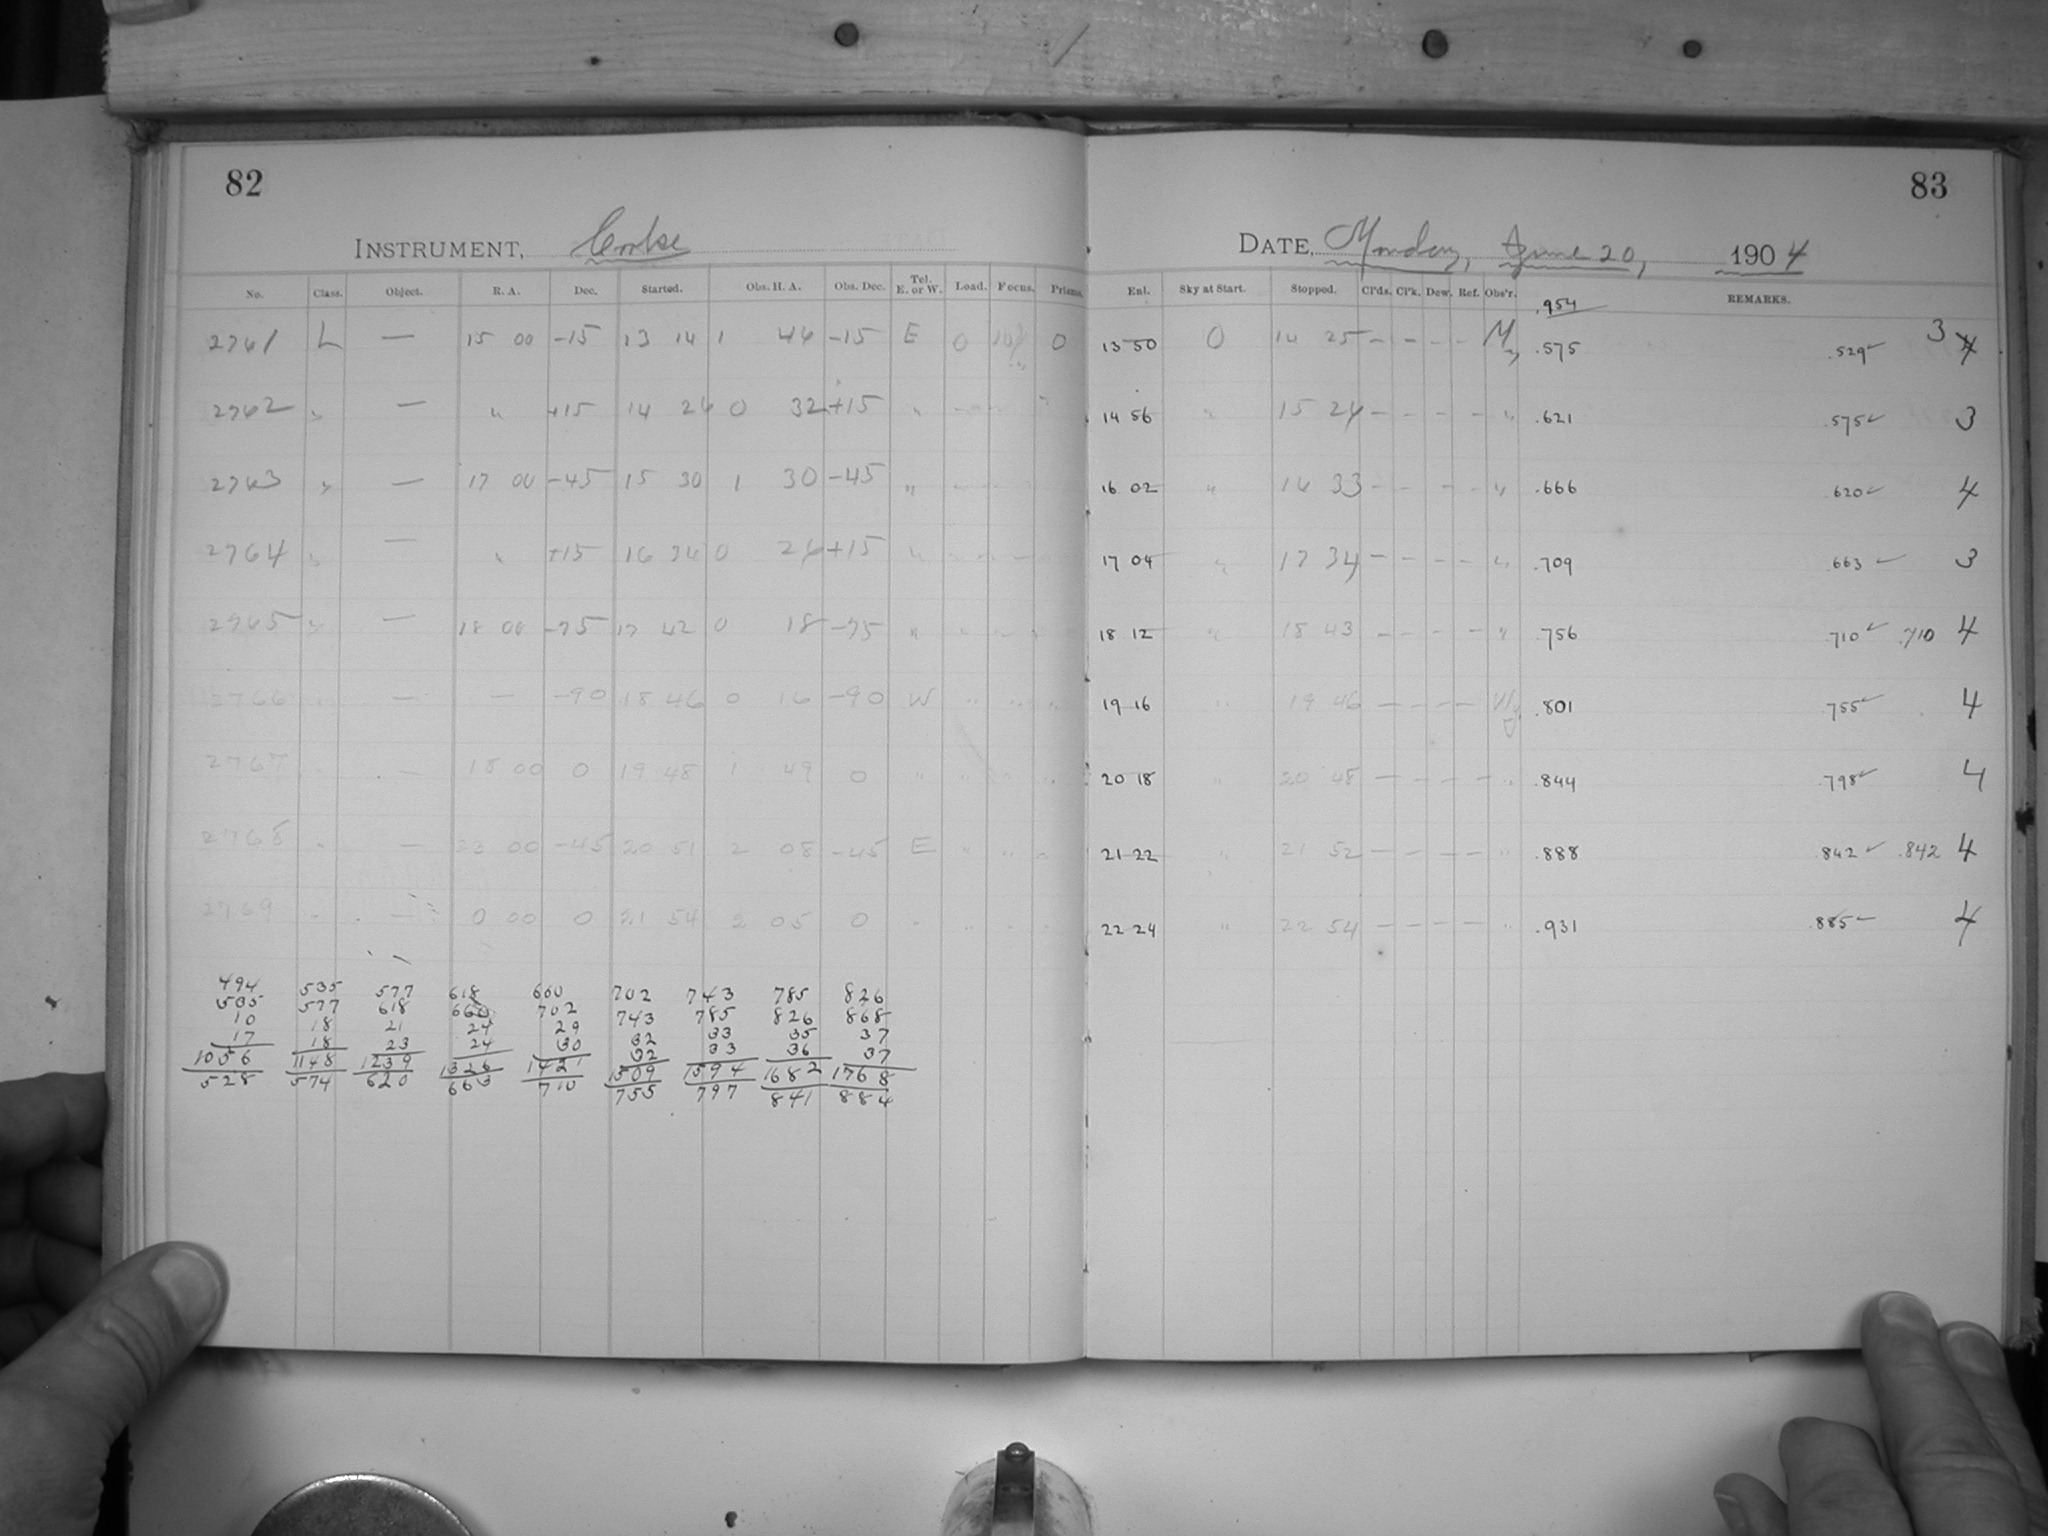 82
INSTRUMENT, Cooke
No. Class. Object. R. A. Dec. Started. Obs. H. A. Obs. Dec. Tel. E. or W. Load. Focus. Prisms.
2761 L — 15 00 -15 13 14 1 44 -15 E 0 0
2762 " — " +15 14 26 0 32 +15 "
2763 " — 17 00 -45 15 30 1 30 -45 "
2764 " — " +15 16 34 0 26 +15 "
2765 " — 18 00 -75 17 42 0 18 -75 "
2766 " — — -90 18 46 0 16 -90 W " " "
2767 " — 18 00 0 19 48 1 49 0 " " " "
2768 " — 23 00 -45 20 51 2 08 -45 E " " "
2769 " — 0 00 0 21 54 2 05 0 " " " "
494 535 577 618 660 702 743 785 826
535 577 618 660 702 743 785 826 868
10 18 21 24 29 32 33 35 37
17 18 23 24 30 32 33 36 37
1056 1148 1239 1326 1421 1509 1594 1682 1768
528 574 620 663 710 755 797 841 884
83
DATE, Monday, June 20, 1904
Enl. Sky at Start. Stopped. Cl'ds. Cl'k. Dew. Ref. Obs'r. REMARKS.
.954
13 50 0 14 25 — — — — .575 .529 ✓ 3
14 56 " 15 24 — — — — " .621 .575 ✓ 3
16 02 " 16 33 — — — — " .666 .620 ✓ 4
17 04 " 17 34 — — — — " .709 .663 ✓ 3
18 12 " 18 43 — — — — " .756 .710 ✓ .710 4
19 16 " 19 46 — — — — .801 .755 ✓ 4
20 18 " 20 48 — — — — " .844 .798 ✓ 4
21 22 " 21 52 — — — — " .888 .842 ✓ .842 4
22 24 " 22 54 — — — — " .931 .885 ✓ 4